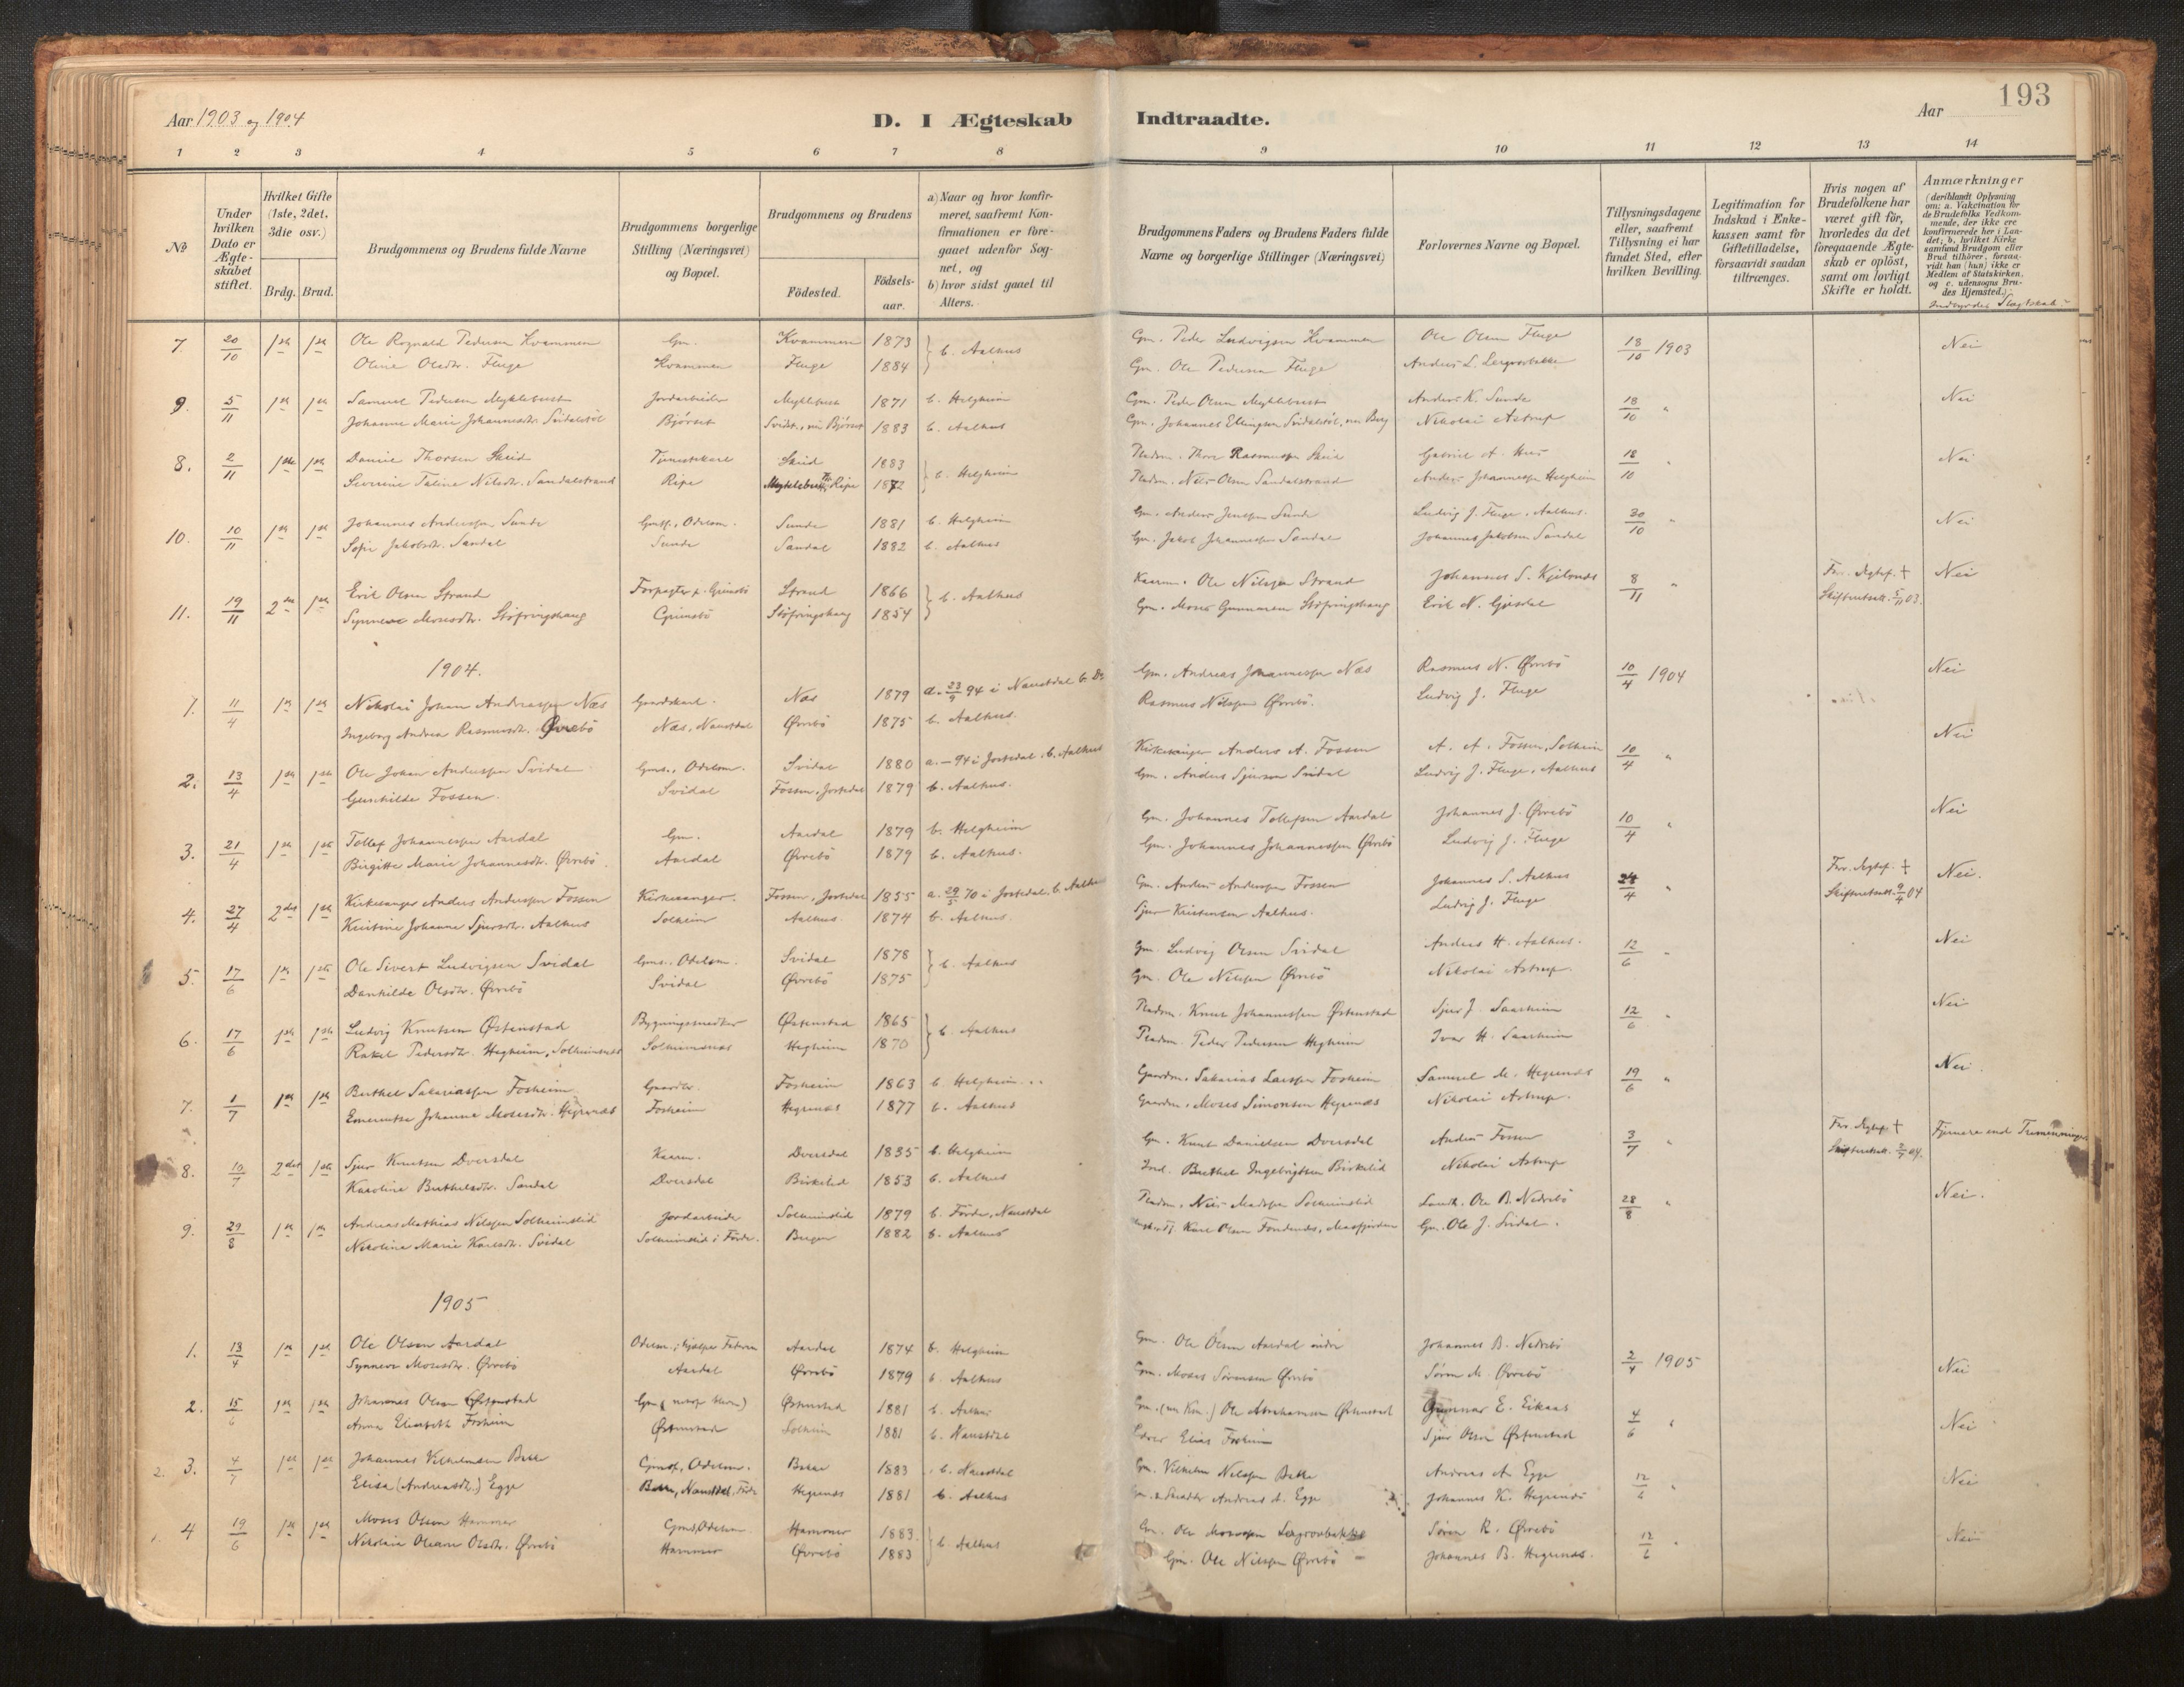 193
Aar 1903 og 1904
D. I Ægteskab Indtraadte.
Aar
1 2 3 4 5 6 7 8 9 10 11 12 13 14
№
Under hvilken Dato er Ægteskabet stiftet.
Hvilket Gifte (1ste, 2det, 3die osv.)
Brdg. Brud.
Brudgommens og Brudens fulde Navne
Brudgommens borgerlige Stilling (Næringsvei) og Bopæl.
Brudgommens og Brudens
Födested.
Födselsaar.
a) Naar og hvor konfirmeret, saafremt Konfirmationen er foregaaet udenfor Sognet, og
b) hvor sidst gaaet til Alters.
Brudgommens Faders og Brudens Faders fulde Navne og borgerlige Stillinger (Næringsvei)
Forlovernes Navne og Bopæl.
Tillysningsdagene eller, saafremt Tillysning ei har fundet Sted, efter hvilken Bevilling.
Legitimation for Indskud i Enkekassen samt for Giftetilladelse, forsaavidt saadan tiltrænges.
Hvis nogen af Brudefolkene har været gift för, hvorledes da det foregaaende Ægteskab er oplöst, samt om lovligt Skifte er holdt.
Anmærkninger
(deriblandt Oplysning om: a. Vakcination for de Brudefolks Vedkommende, der ikke ere konfirmerede her i Landet; b. hvilket Kirkesamfund Brudgom eller Brud tilhörer, forsaavidt han (hun) ikke er Medlem af Statskirken, og c. udensogns Brudes Hjemsted.)
Indbyrdes Slægtskab?
7. 20/10 1ste 1ste Ole Rognald Pedersen Kvammen Gm. Kvammen 1873 b. Aalhus Gm. Peder Ludvigsen Kvammen Ole Olsen Fluge 18/10 1903 Nei
Oline Olsdtr. Fluge Kvammen Fluge 1884 Gm. Ole Pedersen Fluge Anders L.
9. 5/11 1ste 1ste Samuel Pedersen Myklebust Jordarbeider Myklebust 1871 b. Helgheim Gm. Peder Olsen Myklebust Anders K. Sunde 18/10 " Nei
Johanne Marie Johannesdtr. Svidalstöl Bjørset Svidst., nu Bjørset 1883 b. Aalhus Gm. Johannes Ellingsen Svidalstöl, nu Berg Nikolai Astrup
8. 2/11 1ste 1ste Daniel Thorsen Skeid Tjenestekarl Skeid 1883 b. Helgheim Pladsm. Thore Rasmussen Skeid Gabriel A. Hus 18/10 " Nei
Severine Taline Nilsdtr. Sandalstrand Ripe 1872 Pladsm. Nils Olsen Sandalstrand Anders Johannessen Helgheim
10. 10/11 1ste 1ste Johannes Anderssen Sunde Gmss., Odelsm. Sunde 1881 b. Helgheim Gm. Anders Jenssen Sunde Ludvig J. Fluge, Aalhus. 30/10 " Nei
Sofie Jakobsdtr. Sandal Sunde Sandal 1882 b. Aalhus Gm. Jakob Johannessen Sandal Johannes Jakobsen Sandal
11. 19/11 2den 1ste Eril Olsen Strand Forpagter p. Grimsbö Strand 1866 b. Aalhus Kaarm. Ole Nilssen Strand Johannes S. Kjelsnes 8/11 " For. Ægtef. † Nei
Synneve Mosesdtr. Støfringshaug Grimsbö Støfringshaug 1854 Gm. Moses Gunnarsen Støfringshaug Eril N. Gjesdal Skifteretsatt. 5/11 03.
1904.
1. 11/4 1ste 1ste Nikolai Johan Andreassen Næs Gaardskarl. Næs 1879 a. 23/9 94 i Naustdal b. Do Gm. Andreas Johannessen Næs Rasmus N. Øvrebö 10/4 1904 Nei
Ingeborg Andrea Rasmusdtr. Øvrebö Næs, Naustdal Øvrebö 1875 b. Aalhus. Rasmus Nilssen Øvrebö. Ludvig J. Fluge
2. 13/4 1ste 1ste Ole Johan Anderssen Svidal Gmss., Odelsm. Svidal 1880 a. – 94 i Jostedal, b. Aalhus Kirkesanger Anders A. Fossen A. A. Fossen, Solheim 10/4 " Nei
Gunhilde Fossen. Svidal Fossen, Jostedal 1879 b. Aalhus. Gm. Anders Sjursen Svidal Ludvig J. Fluge, Aalhus
3. 21/4 1ste 1ste Tollef Johannessen Aardal Gm. Aardal 1879 b. Helgheim Gm. Johannes Tollefsen Aardal Johannes J. Øvrebö 10/4 " Nei
Birgitte Marie Johannesdtr. Øvrebö. Aardal Øvrebö 1879 b. Aalhus. Gm. Johannes Johannessen Øvrebö Ludvig J. Fluge
4. 27/4 2det 1ste Kirkesanger Anders Anderssen Fossen Kirkesanger. Fossen, Jostedal 1855 a. 29/5 70 i Jostedal, b. Aalhus Gm. Anders Anderssen Fossen Johannes S. Aalhus 24/4 " For. Ægtef. † Nei.
Kristine Johanne Sjursdtr. Aalhus Solheim Aalhus 1874 b. Aalhus. Sjur Kristensen Aalhus. Ludvig J. Fluge Skifteretsatt. 9/4 04
5. 17/6 1ste 1ste Ole Sivert Ludvigsen Svidal Gmss. Odelsm. Svidal 1878 b. Aalhus Gm. Ludvig Olsen Svidal Anders H. Aalhus. 12/6 " Nei
Danhilde Olsdtr. Øvrebö Svidal Øvrebö 1875 Gm. Ole Nilssen Øvrebö Nikolai Astrup.
6. 17/6 1ste 1ste Ludvig Knutsen Østenstad Bygningssnedker Østenstad 1865 b. Aalhus Pladsm. Knut Johannessen Østenstad Sjur J. Saarheim 12/6 " Nei
Rakel Pedersdtr. Hegheim, Solheimsnes Solheimsnes Hegheim 1870 Pladsm. Peder Pedersen Hegheim Ivar H. Saarheim
7. 1/7 1ste 1ste Berthel Sakariassen Fosheim Gaardbr. Fosheim 1863 b. Helgheim Gaardm. Sakarias Larssen Fosheim Samuel M. Hegrenes 19/6 " Nei.
Emerentse Johanna Mosesdtr. Hegrenæs Fosheim Hegrenæs 1877 b. Aalhus Gaardm. Moses Simonsen Hegrenæs Nikolai Astrup.
8. 10/7 2det 1ste Sjur Knutsen Dvergsdal Kaarm. Dvergsdal 1835 b. Helgheim Gm. Knut Danielssen Dvergsdal Anders Fossen 3/7 " For. Ægtef. † Fjernere end Tremenninger
Karoline Berthelsdtr. Sandal Dvergsdal Birkelid 1853 b. Aalhus Ind. Berthel Ingebrigtsen Birkelid Nikolai Astrup Skifteretsatt. 2/7 04.
9. 29/8 1ste 1ste Andreas Mathias Nilssen Solheimslid Jordarbeider Solheimslid 1879 b. Förde, Naustdal Pladsm. Nils Madssen Solheimslid Landh. Ole B. Nedrebö 28/8 " Nei.
Nikoline Marie Karlsdtr. Svidal Solheimslid i Förde. Bergen 1882 b. Aalhus Karl Olsen Fondenes, Masfjorden Gm. Ole J. Svidal.
1905
1. 13/4 1ste 1ste Ole Olsen Aardal Odelsm., hjælper Faderen Aardal 1874 b. Helgheim Gm. Ole Olsen Aardal indre Johannes B. Nedrebö 2/4 1905 Nei
Synneve Mosesdtr. Øvrebö Aardal Øvrebö 1879 b. Aalhus Gm. Moses Sørensen Øvrebö Søren M. Øvrebö
2. 15/6 1ste 1ste Johannes Olsen Østenstad Østenstad 1881 b. Aalhus Gm. Ole Abrahamsen Østenstad Gunnar E. Eikaas 4/6 " Nei
Anna Elisabeth Fosheim Østenstad Solheim 1881 b. Naustdal Lærer Elias Fosheim Sjur Olsen Østenstad
2. 3. 4/7 1ste 1ste Johannes Vilhelmsen Bakke Gmss, Odelsm. Bakke 1883 b. Naustdal Gm. Vilhelm Nilssen Bakke Andreas A. Egge 12/6 " Nei
Elisa (Andreasdtr.) Egge Bakke, Naustdal, Förde Hegrenes 1881 b. Aalhus Andreas A. Egge Johannes K. Hegrenes
1. 4 19/6 1ste 1ste Moses Olsen Hammer Gmss, Odelsm Hammer 1883 b. Aalhus Gm. Ole Mosessen Søren R. Øvrebö 12/6 " Nei
Nikoline Oleane Olsdtr. Øvrebö Hammer Øvrebö 1883 Gm. Ole Nilssen Øvrebö Johannes B. Hegrenes.